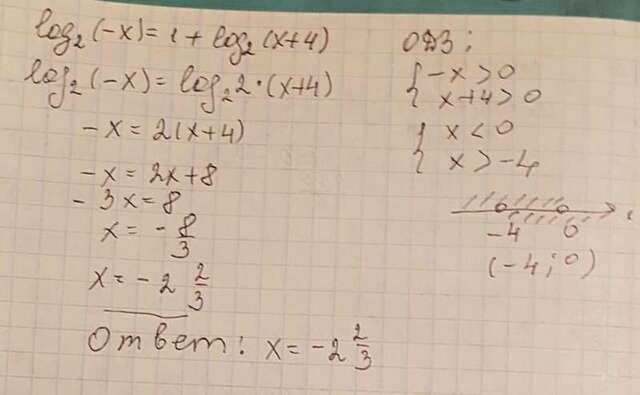 log₂(-x) = 1 + log₂(x+4)
log₂(-x) = log₂2·(x+4)
-x = 2(x+4)
-x = 2x+8
-3x = 8
x = -8/3
x = -2 2/3
Ответ: x = -2 2/3
ОДЗ:
{ -x > 0
{ x+4 > 0
{ x < 0
{ x > -4
-4 0
(-4; 0)